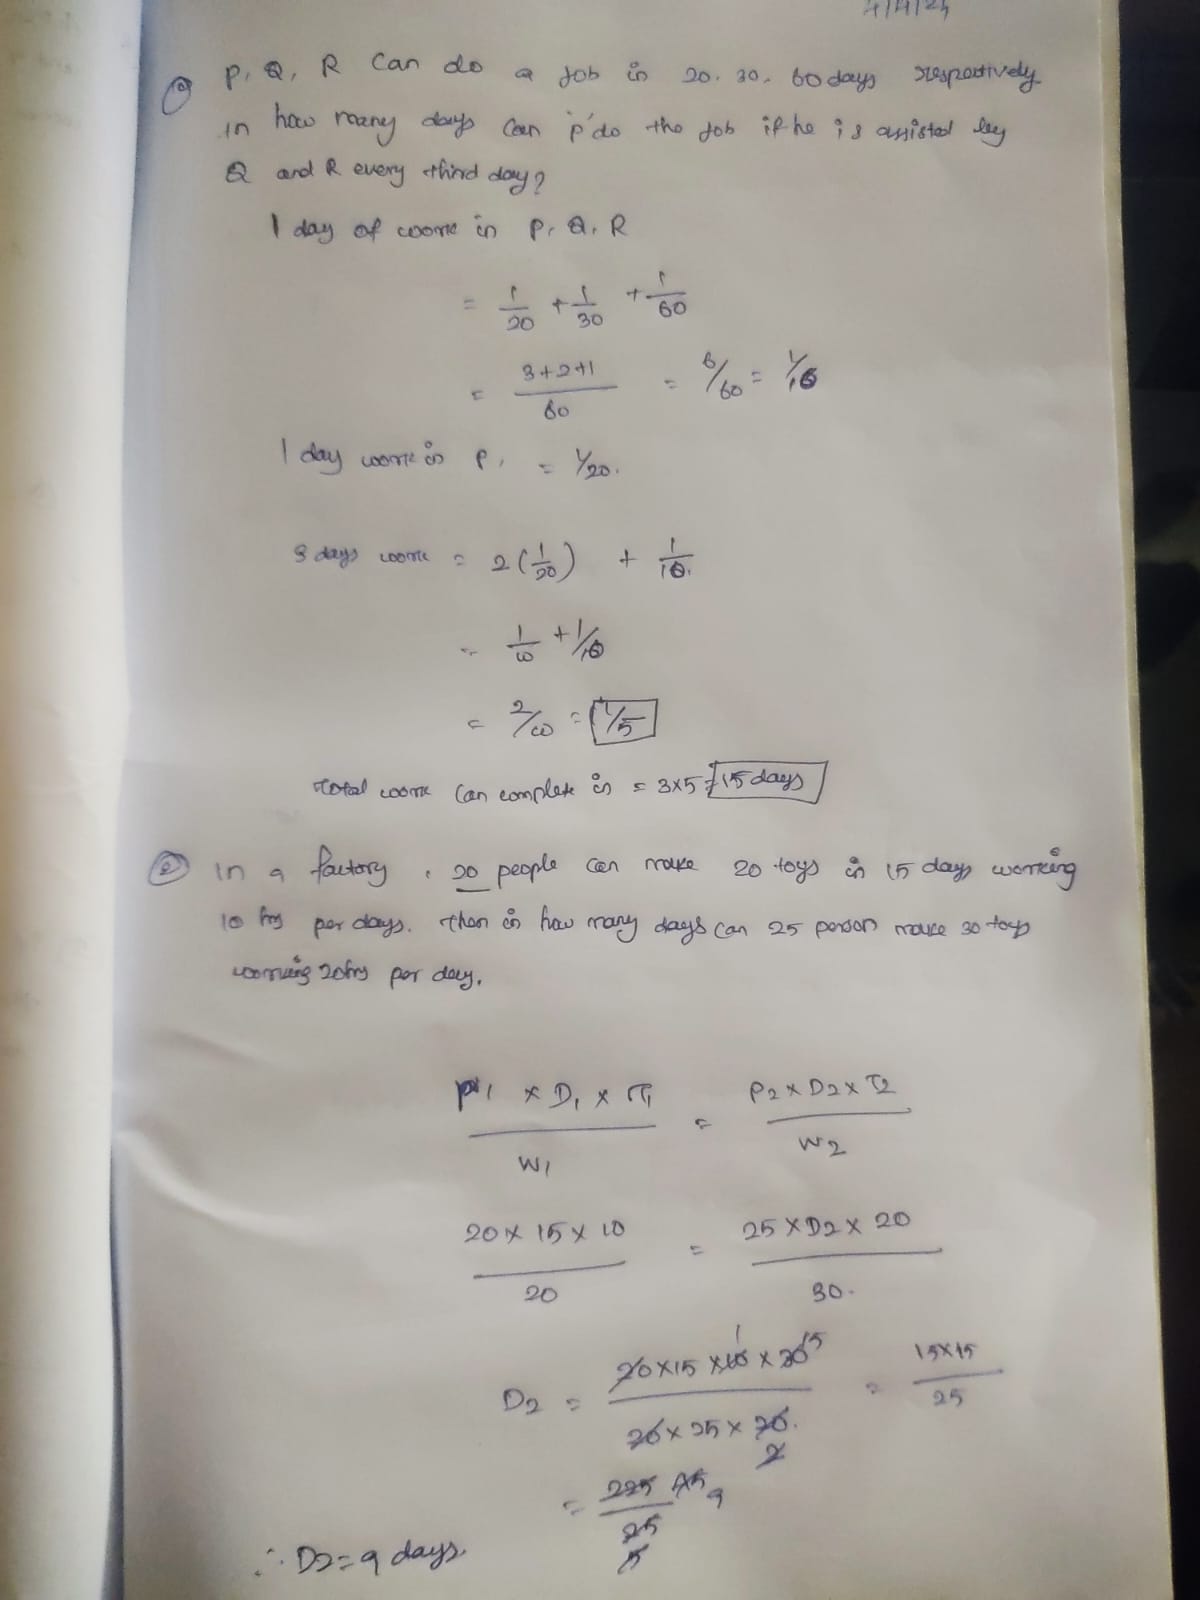 4/4/24
① P, Q, R Can do a job in 20, 30, 60 days respectively
in how many days can 'p' do the job if he is assisted by
Q and R every third day?
1 day of work in P, Q, R
= 1/20 + 1/30 + 1/60
= 3+2+1/60 = 6/60 = 1/10
1 day work in P, = 1/20.
3 days work = 2(1/20) + 1/10.
= 1/10 + 1/10
= 2/10 = 1/5
Total work can complete in = 3x5 = 15 days
② In a factory, 20 people can make 20 toys in 15 days working
10 hrs per days. then in how many days can 25 person make 30 toys
working 20hrs per day.
P1 x D1 x T1 / W1 = P2 x D2 x T2 / W2
20 x 15 x 10 / 20 = 25 x D2 x 20 / 30.
D2 = 20x15x10x30 / 20x25x20. = 15x15 / 25
= 225 / 25
∴ D2 = 9 days.